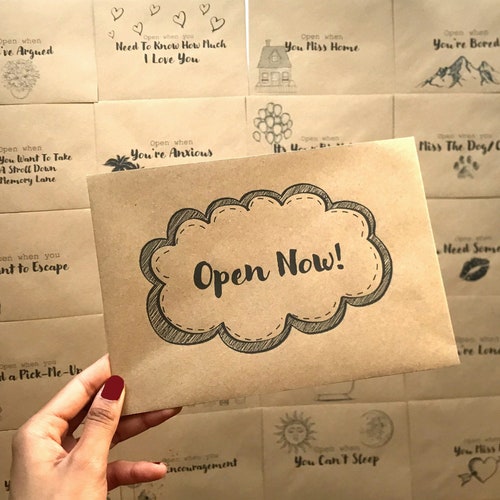 Open when
've Argued
Open when you
Need To Know How Much
I Love You
Open when
You Miss Home
Open when
You're Bored
Open when
You Want To Take
A Stroll Down
Memory Lane
Open when
You're Anxious
Open when
Open when
Miss The Dog/C
Open Now!
Open when you
nt to Escape
Open when you
Need Some
Open when you
d a Pick-Me-Up
Open when
u're Lon
Encouragement
Open when
You Can't Sleep
Open when
You Miss